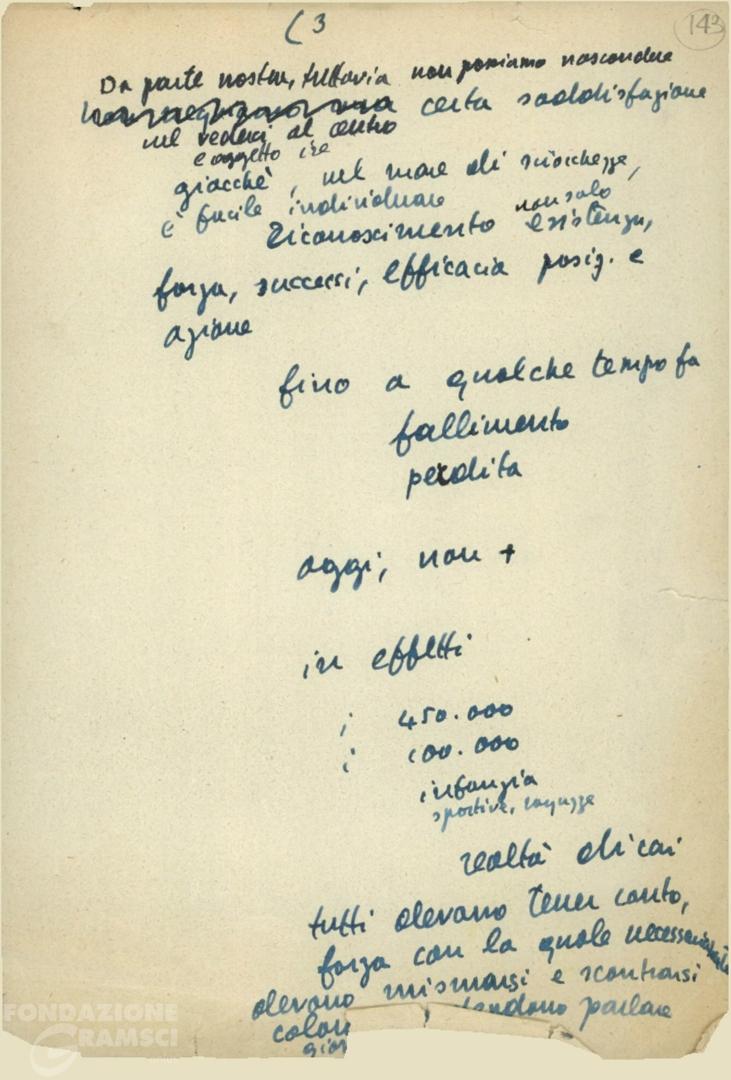 ( 3
143
Da parte nostra, tuttavia non possiamo nascondere
certa soddisfazione
nel vederci al centro
e oggetto ire
giacché, nel mare di sciocchezze,
è facile individuare
non solo
riconoscimento esistenza,
forza, successi, efficacia posiz. e
azione
fino a qualche tempo fa
fallimento
perdita
oggi, non +
in effetti
i 450.000
i 100.000
infanzia
sportive, ragazze
realtà di cui
tutti devono tener conto,
forza con la quale necessariamente
devono misurarsi e scontrarsi
color tendono parlare
gior
FONDAZIONE
GRAMSCI